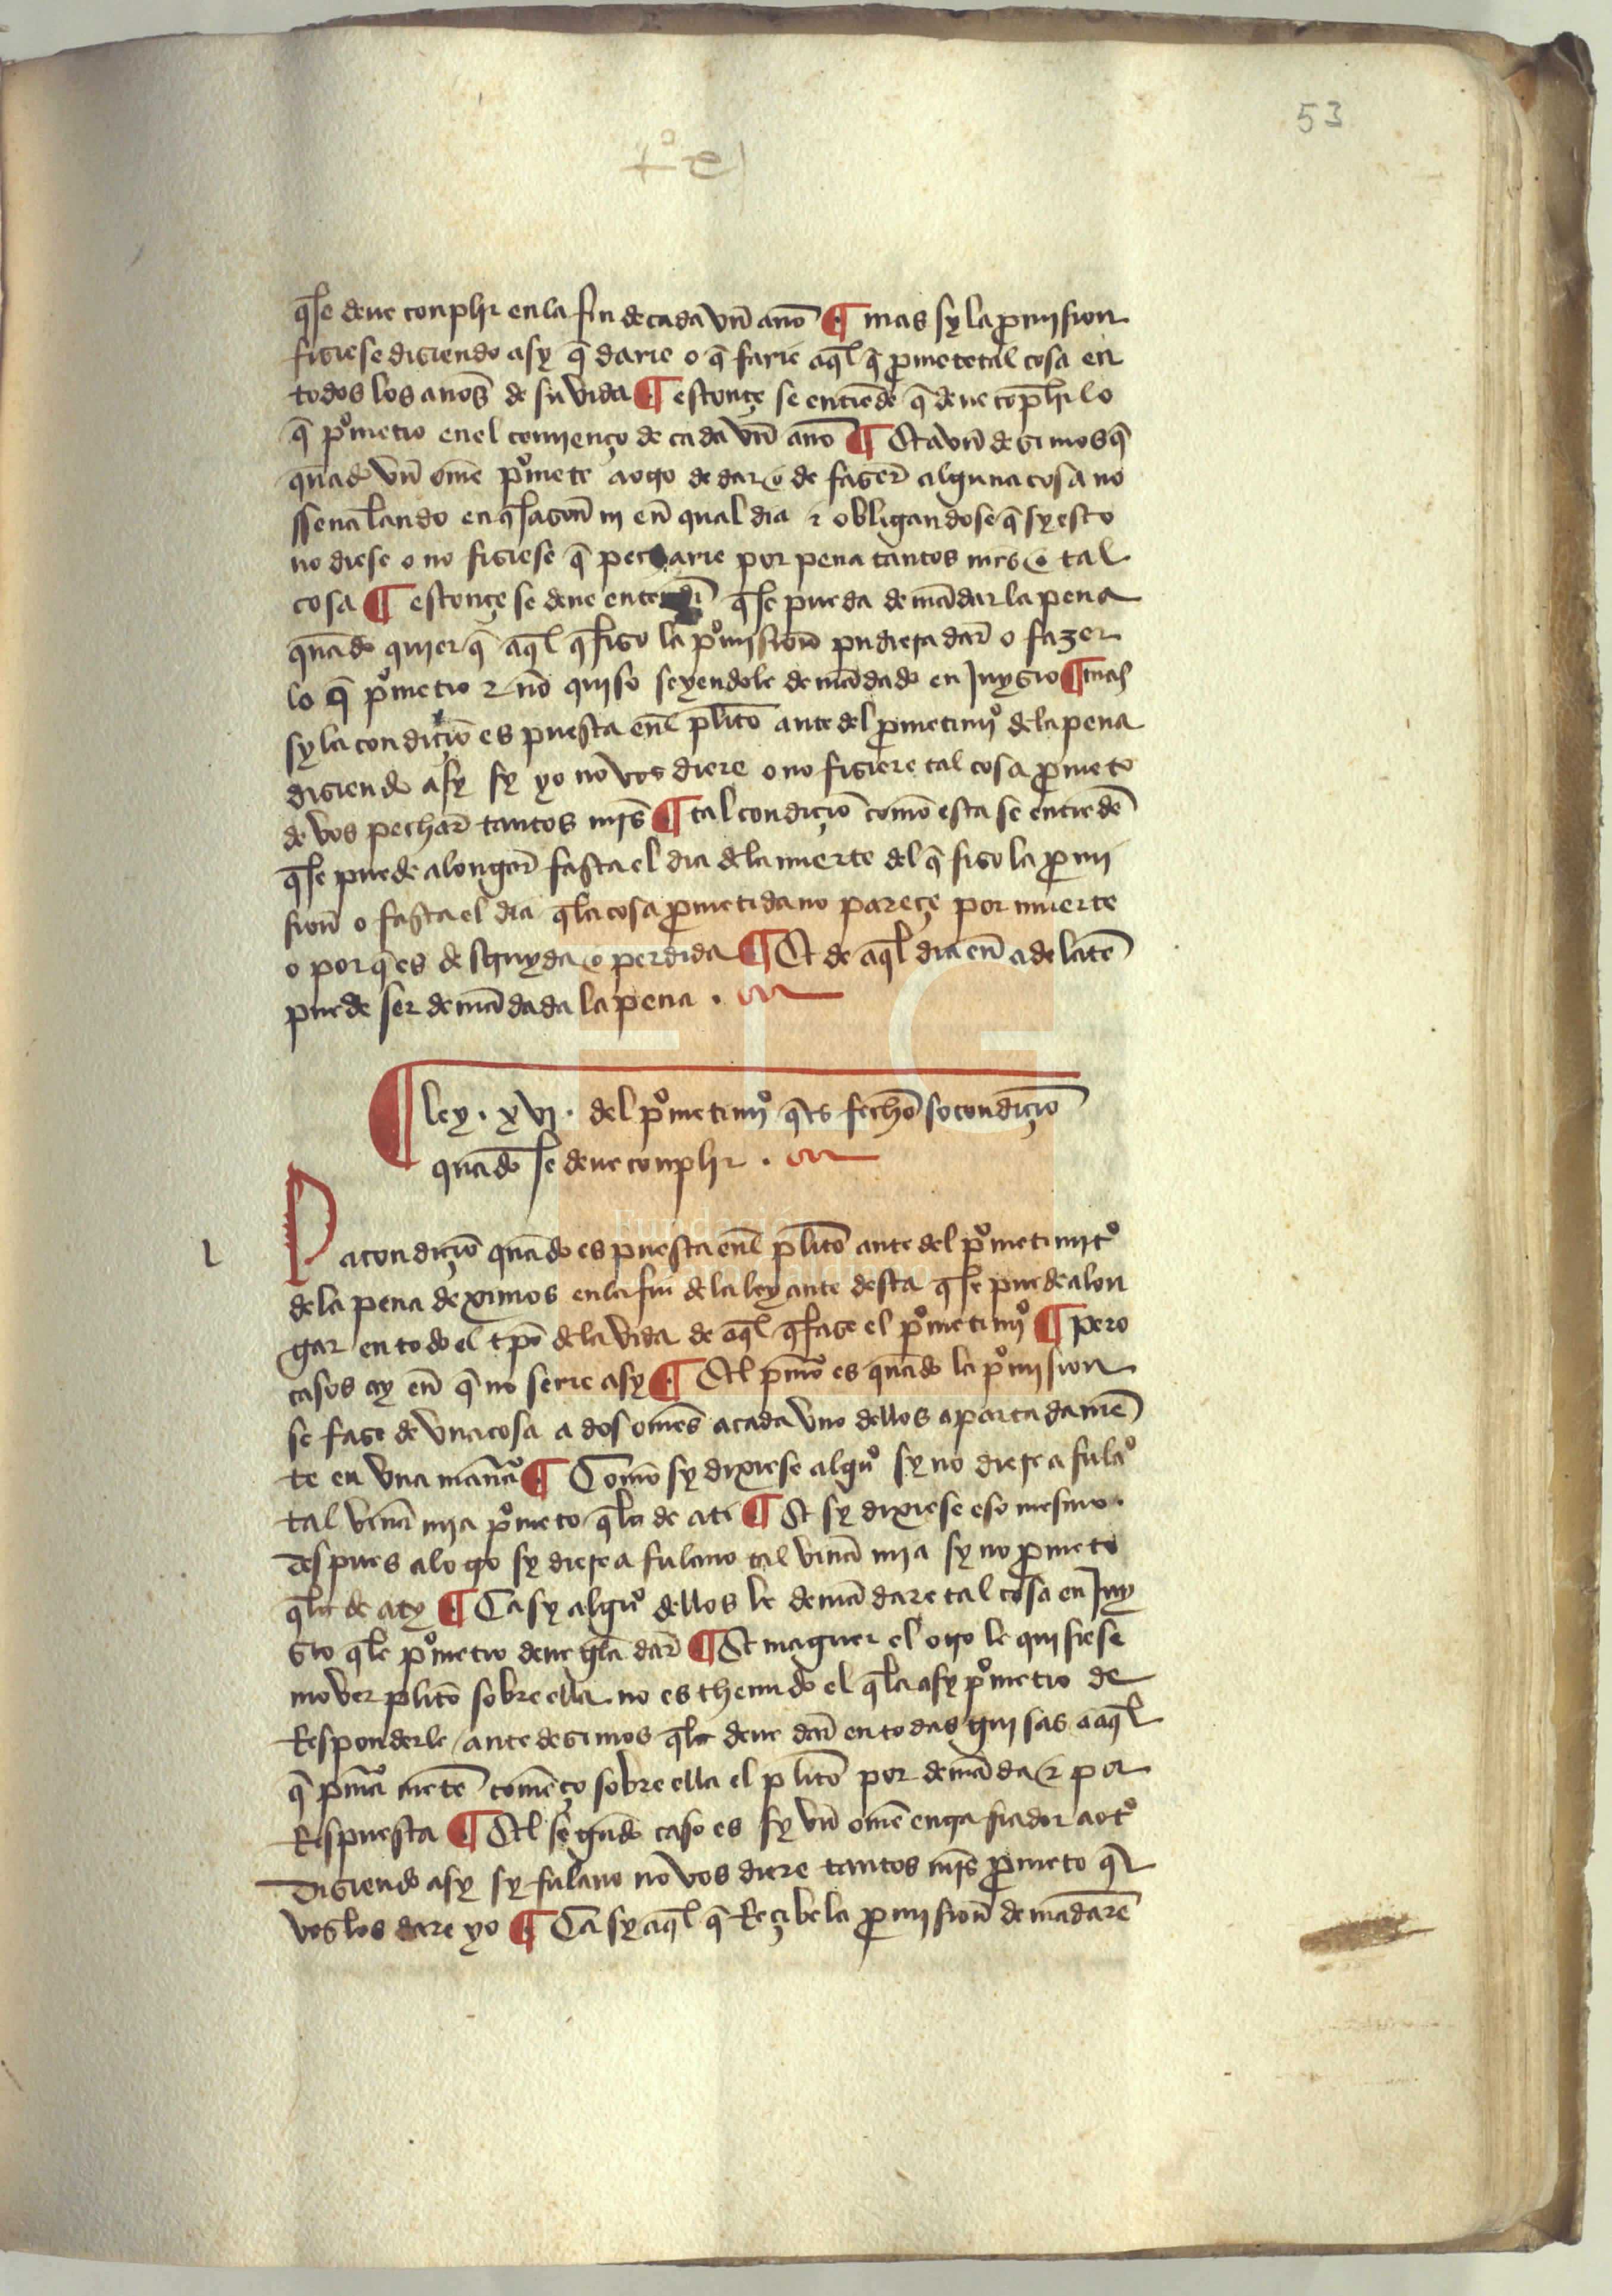 53
q̄se deue conplir en la fin de cada vn̄ ano ¶ mas sy la promision
fiziese diziendo asy q̄ darie o q̄ farie aq̄l q̄ promete tal cosa en
todos los anos de su vida ¶ estonçe se entiende q̄ deue cōplir lo
q̄ pºmetio en el comienço de cada vn̄ ano ¶ Et avn̄ dezimos q̄
quādo vn̄ ome pºmete a oto de dar o de fazer alguna cosa no
ssenalando en q̄ sazon ni en qual dia ⁊ obligandose q̄ sy esto
no diese o no fiziese q̄ pecharie por pena tantos mrs o tal
cosa ¶ estonçe se deue entender q̄ se pueda demādar la pena
quādo quier q̄ aq̄l q̄ fizo la pºmision pudiera dar o fazer
lo q̄ pºmetio ⁊ nō quiso seyendole demādado en Juyzio ¶ mas
sy la condiçiō es puesta en̄l plito ante del prometimiº de la pena
diziendo asy sy yo no vos diere o no fiziere tal cosa prometo
de vos pechar tantos mrs ¶ tal condiçiō como esta se entiēde
q̄ se puede alongar fasta el dia de la muerte del q̄ fizo la promi
sion o fasta el dia q̄ la cosa prometida no pareçe por muerte
o por q̄ es destruyda o perdida ¶ Et de aq̄l dia en adelāte
puede ser demādada la pena .
¶ ley . xvj . del pºmetimiº q̄ es fecho so condiçiō
quādo se deue conplir .
l
La condiçiō quādo es puesta en̄l plito ante del pºmetimitº
de la pena deximos en la fin de la ley ante desta q̄ se puede alon
gar en todo el tpō de la vida de aq̄l q̄ faze el pºmetimiº ¶ pero
casos ay en q̄ no serie asy ¶ El pmºo es quādo la pºmision
se faze de vna cosa a dos omes a cada vno dellos apartadamē
te en vna manªa ¶ Como sy dixiese algūº sy no diere a fulaº
tal vina mia pºmeto q̄ la de a ti ¶ Et sy dixiese eso mesmo
despues a loto sy diere a fulano tal vina mia sy no prometo
q̄ la de a ty ¶ Ca sy algūº dellos le demādare tal cosa en Juy
zio q̄ le pºmetio deue gela dar ¶ Et maguer el oto le quisiese
mover plito sobre ella no es thenudo el q̄ la asy pºmetio de
Responderle / ante dezimos q̄ la deue dar en todas guisas a aq̄l
q̄ pmªa mēte comēço sobre ella el plito por demāda ⁊ por
Respuesta ¶ El segūdo caso es sy vn̄ ome entra fiador a otº
diziendo asy sy fulano no vos diere tantos mrs prometo q̄
vos los dare yo ¶ Ca sy aq̄l q̄ Reçibe la promision demādare